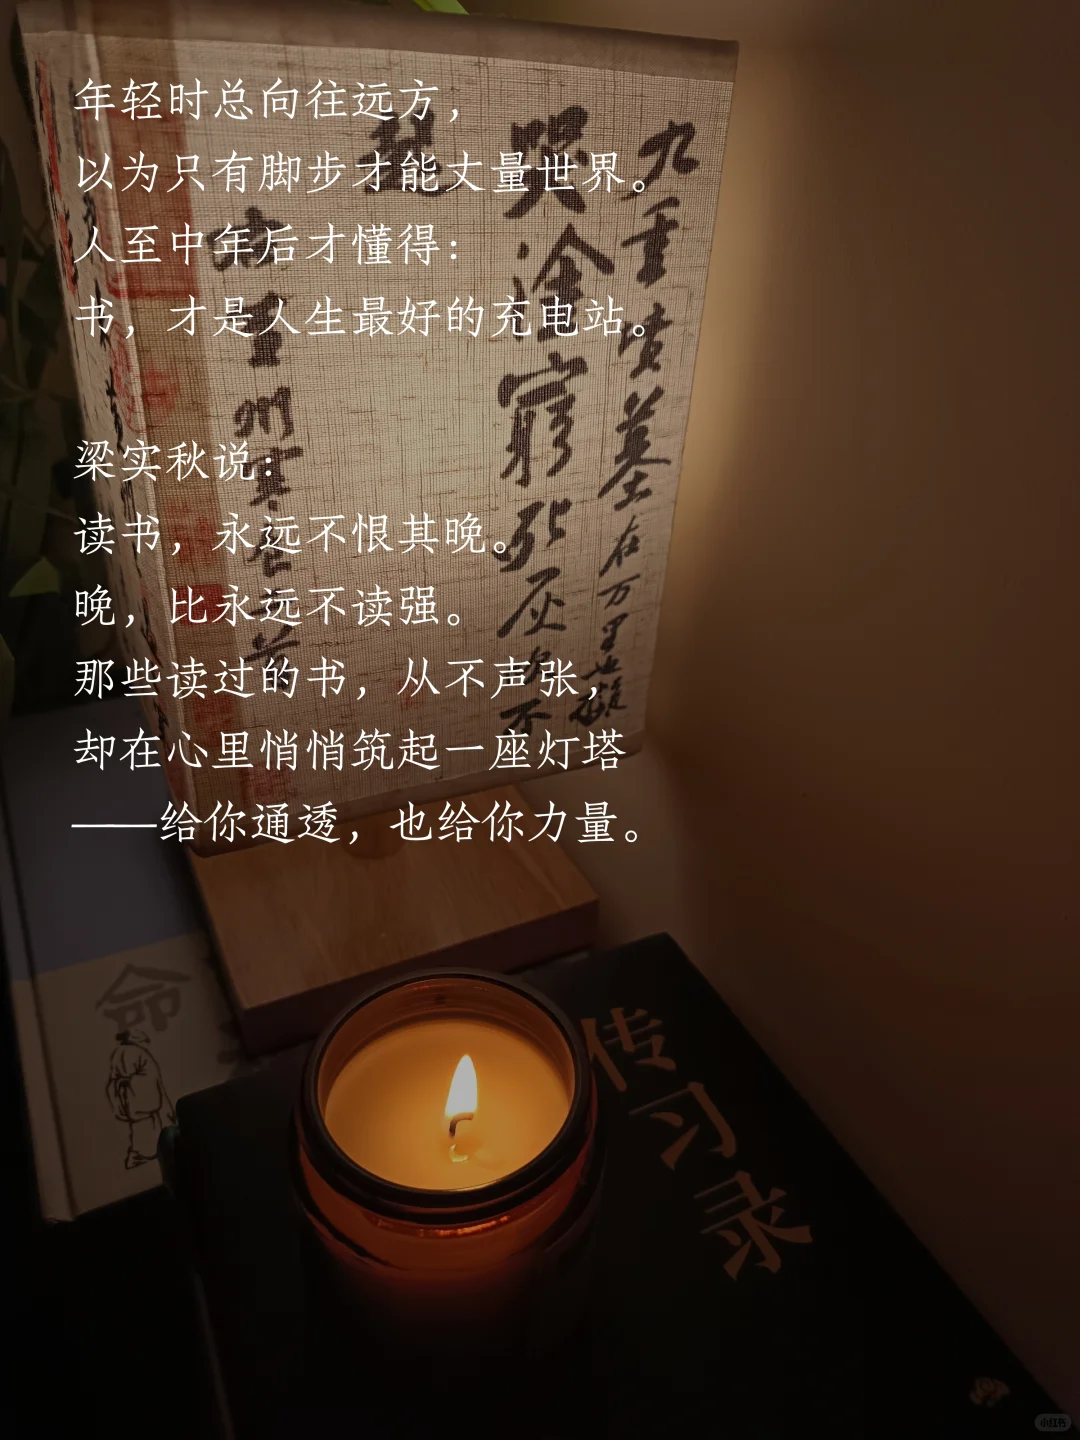 年轻时总向往远方，
以为只有脚步才能丈量世界。
人至中年后才懂得：
书，才是人生最好的充电站。
梁实秋说：
读书，永远不恨其晚。
晚，比永远不读强。
那些读过的书，从不声张，
却在心里悄悄筑起一座灯塔
——给你通透，也给你力量。
九重 墳墓在万里也擬
哭塗窮死灰
州寒食
命
传习录
小红书